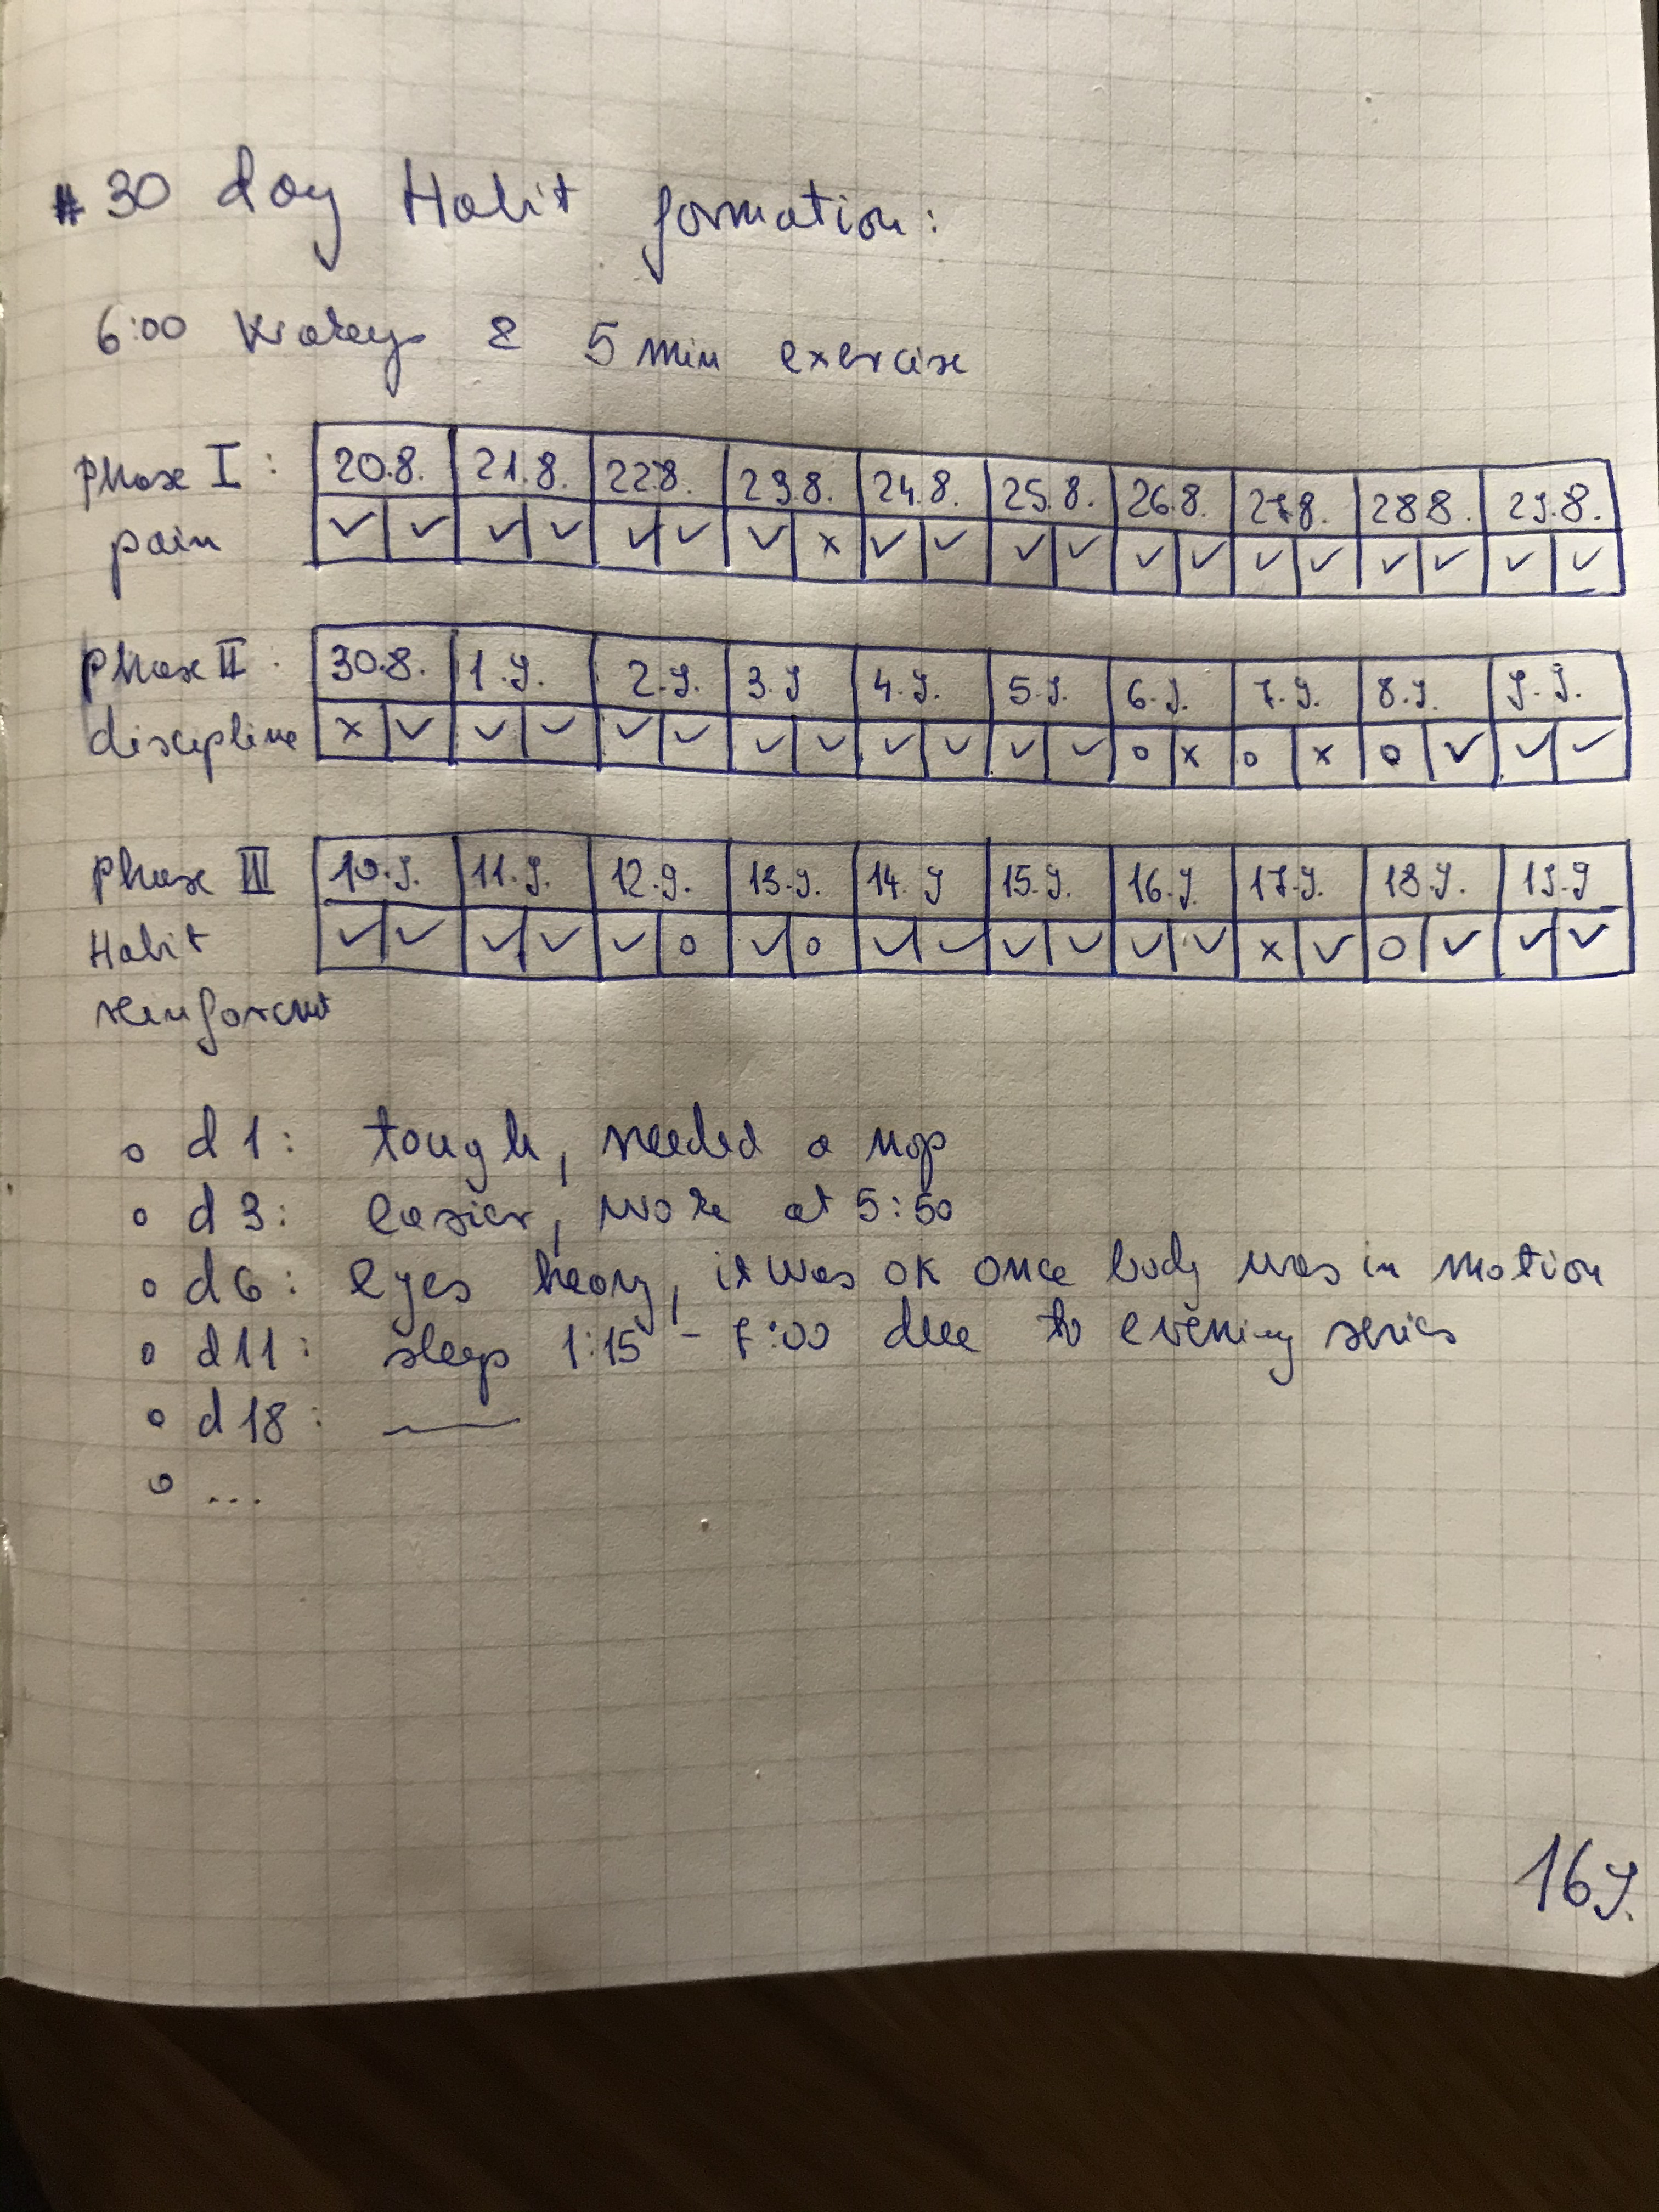 # 30 day Habit formation:
6:00 Wakeup & 5 min exercise
Phase I: 20.8. 21.8. 22.8. 23.8. 24.8. 25.8. 26.8. 27.8. 28.8. 29.8.
pain ✓ ✓ ✓ ✓ ✓ ✓ ✓ x ✓ ✓ ✓ ✓ ✓ ✓ ✓ ✓ ✓ ✓ ✓ ✓
Phase II: 30.8. 1.9. 2.9. 3.9 4.9. 5.9. 6.9. 7.9. 8.9. 9.9.
discipline x ✓ ✓ ✓ ✓ ✓ ✓ ✓ ✓ ✓ ✓ ✓ o x o x o ✓ ✓ ✓
Phase III 10.9. 11.9. 12.9. 13.9. 14.9 15.9. 16.9. 17.9. 18.9. 19.9
Habit ✓ ✓ ✓ ✓ ✓ o ✓ o ✓ ✓ ✓ ✓ ✓ ✓ x ✓ o ✓ ✓ ✓
o d1: tough, needed a nap
o d3: easier, woke at 5:50
o d6: eyes heavy, it was ok once body was in motion
o d11: sleep 1:15 - 7:00 due to evening series
o d18: —
o ...
169.